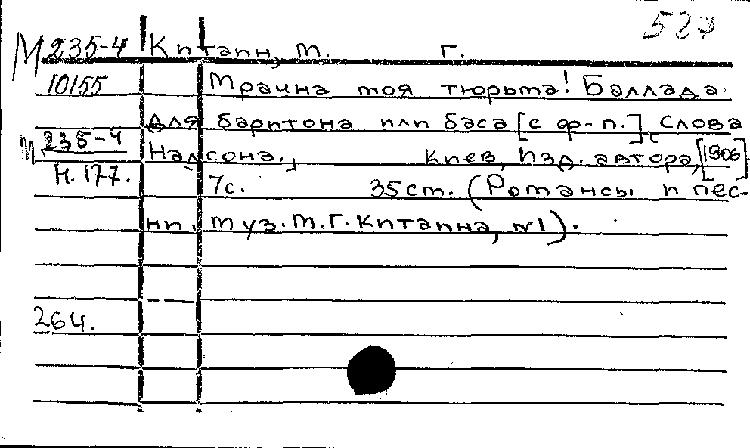 527
М 235-4 Китаин, М. Г.
10155 Мрачна моя тюрьма! Баллада
для баритона или баса [с ф-п.]. (Слова
М 235-4 Надсона.) Киев, Изд. автора, [1906]
Н. 177. 7с. 35 см. (Романсы и пес-
ни. Муз. М. Г. Китаина, №1).
264.